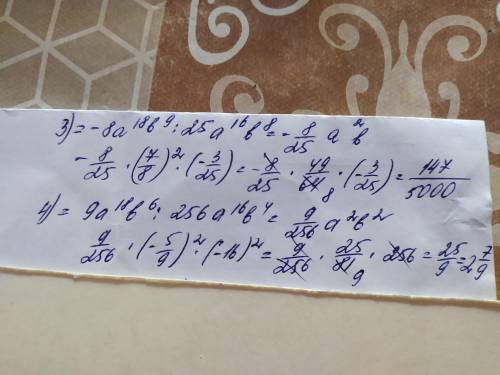 3) = -8a¹⁸b⁹ : 25a¹⁶b⁸ = -8/25 a²b
-8/25 · (7/8)² · (-3/25) = -8/25 · 49/64 8 · (-3/25) = 147/5000
4) = 9a¹⁸b⁶ : 256a¹⁶b⁴ = 9/256 a²b²
9/256 · (-5/9)² · (-16)² = 9/256 · 25/81 9 · 256 = 25/9 = 2 7/9